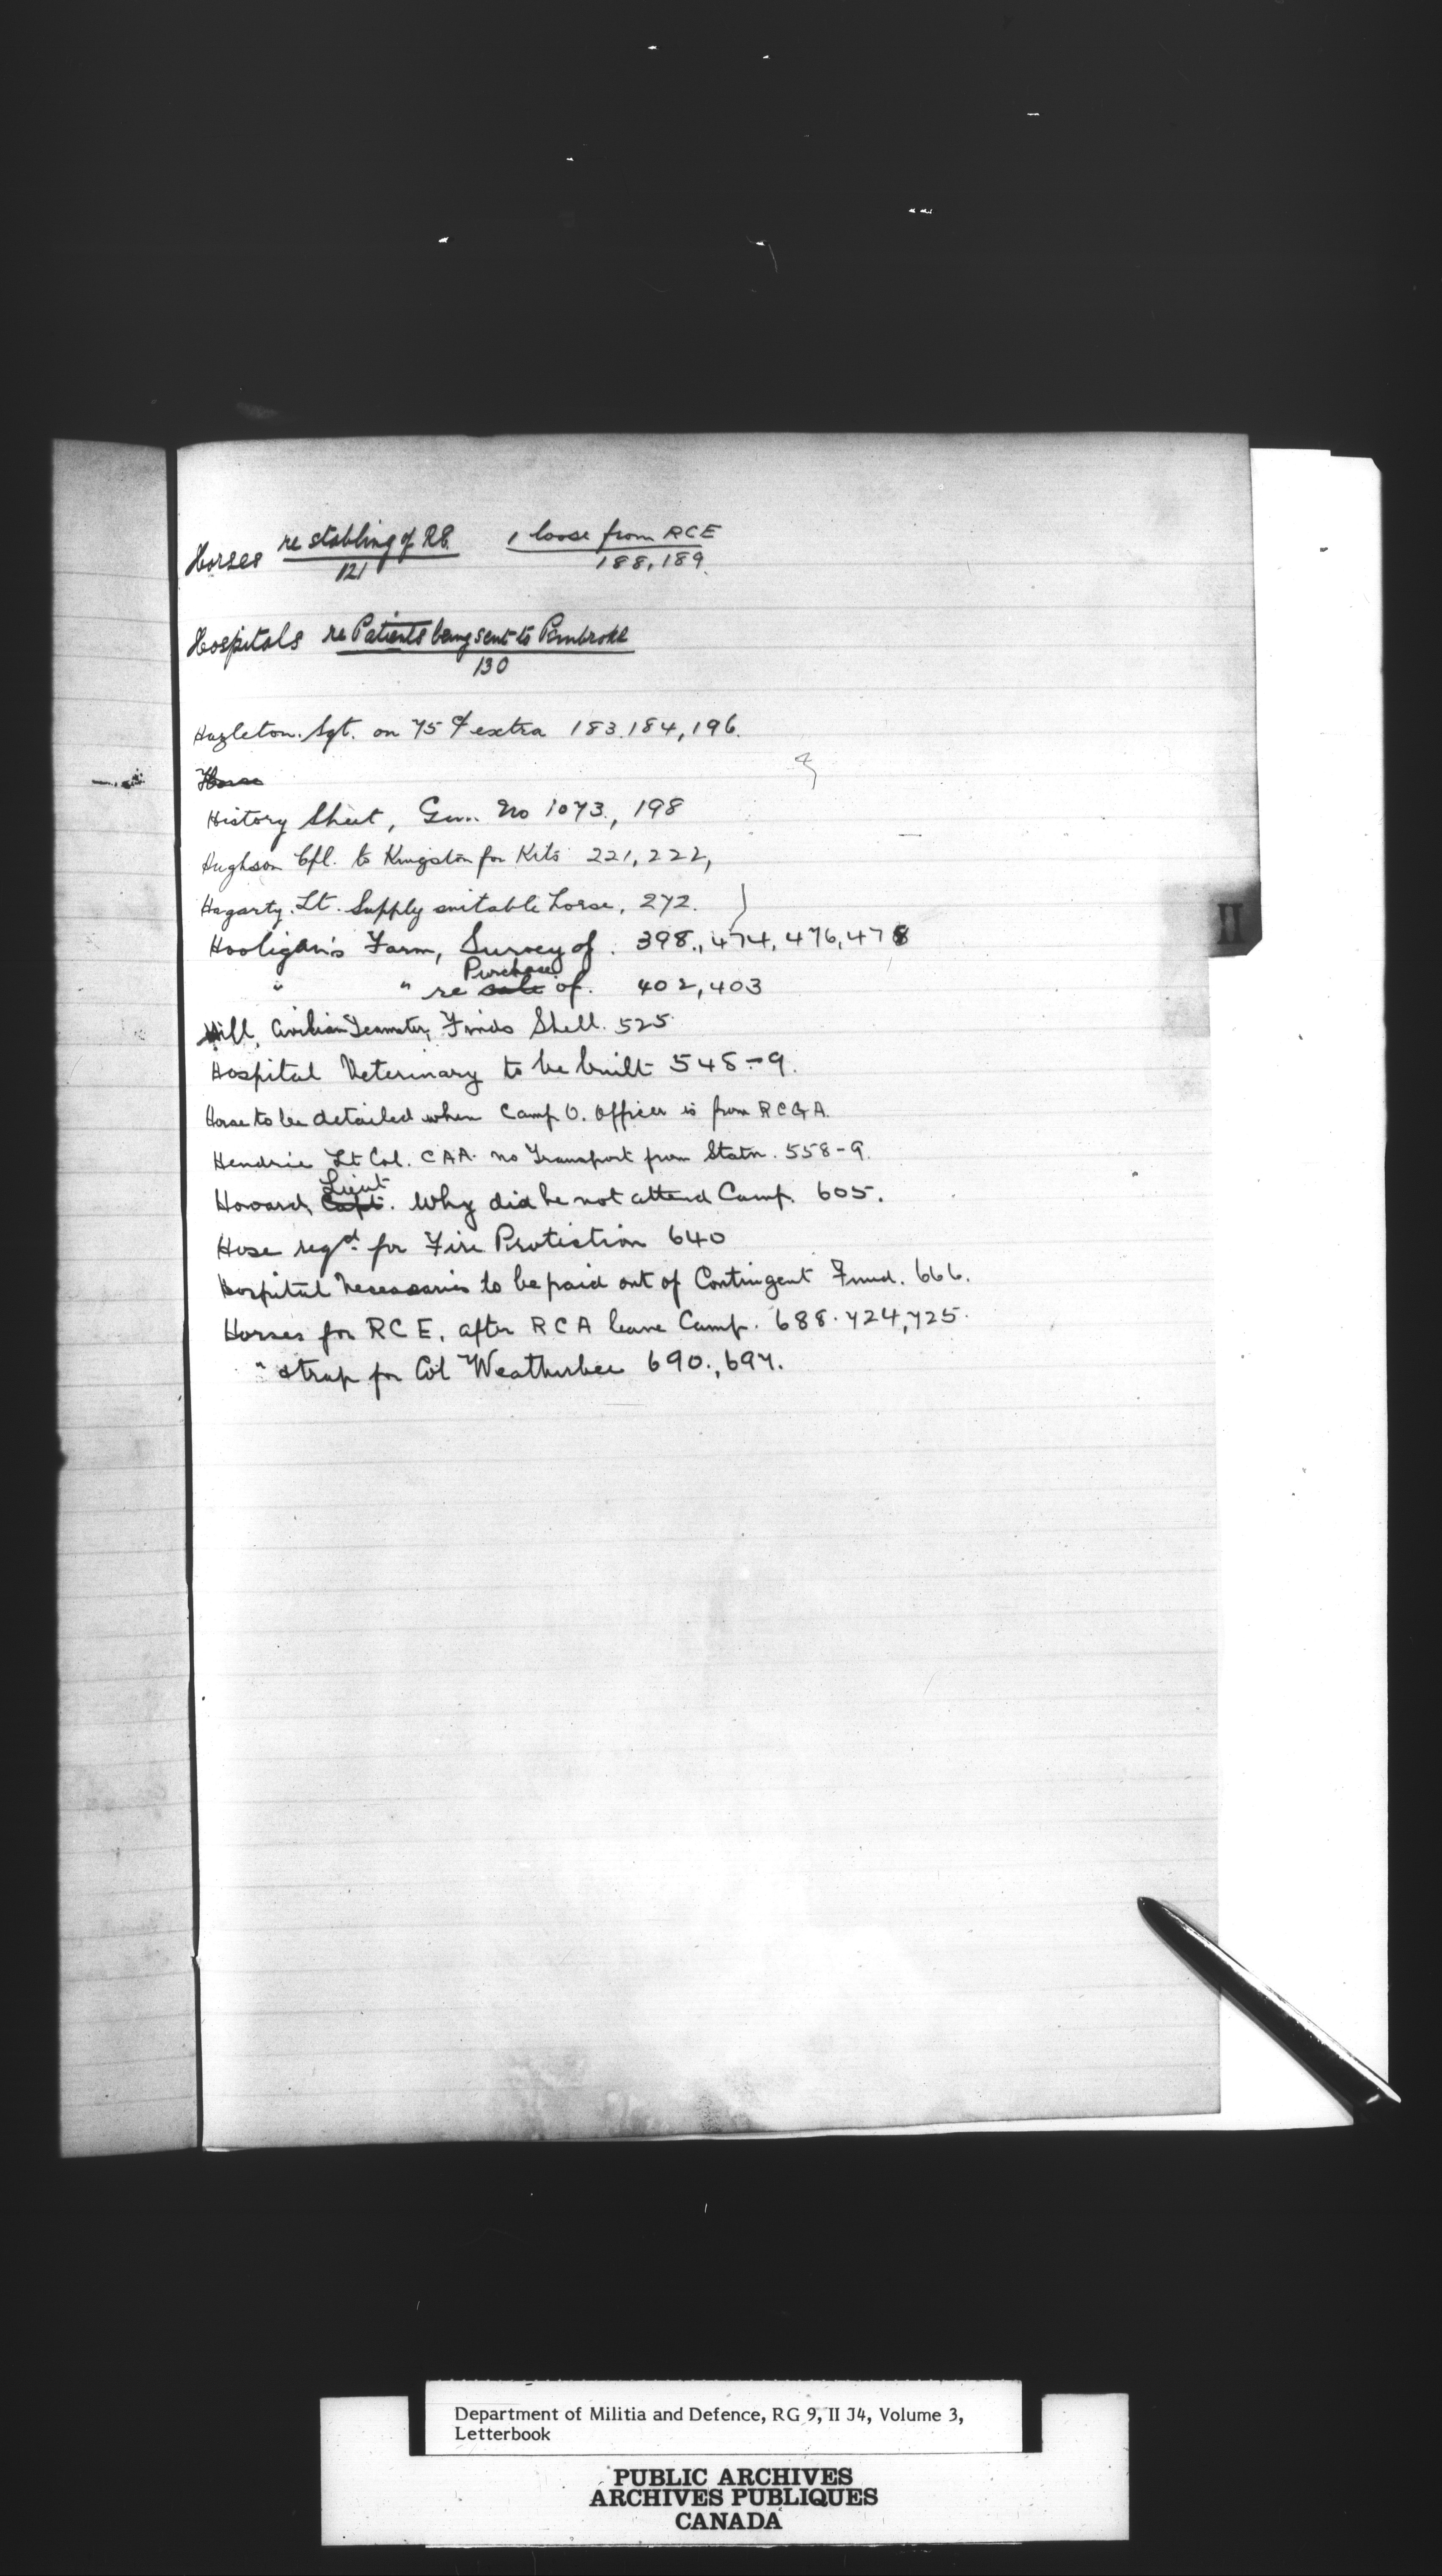 Horses re stabling of RE. 1 loose from RCE
121 188, 189.
Hospitals re Patients being sent to Pembroke
130
Hazleton. Sgt. on 75 ¢ extra 183.184, 196.
History Sheet, Gun. No 1073., 198
Hughson Cpl. to Kingston for Kits 221, 222,
Hagarty. Lt. Supply suitable horse, 272.
Hooligan's Farm, Survey of. 398., 474, 476, 478
Purchase
" " re sale of. 402, 403
Hill, Civilian Teamster, Finds Shell. 525
Hospital Veterinary to be built 548-9.
Horse to be detailed when Camp O. Officer is from RCGA.
Hendrie Lt Col. CAA. no Transport from Statn. 558-9.
Lieut
Howard, Capt. Why did he not attend Camp. 605.
Hose reqd. for Fire Protection 640
Hospital Necessaries to be paid out of Contingent Fund. 666.
Horses for RCE, after RCA leave Camp. 688. 724, 725.
" & trap for Col Weatherbee 690., 697.
H
Department of Militia and Defence, RG 9, II J4, Volume 3,
Letterbook
PUBLIC ARCHIVES
ARCHIVES PUBLIQUES
CANADA